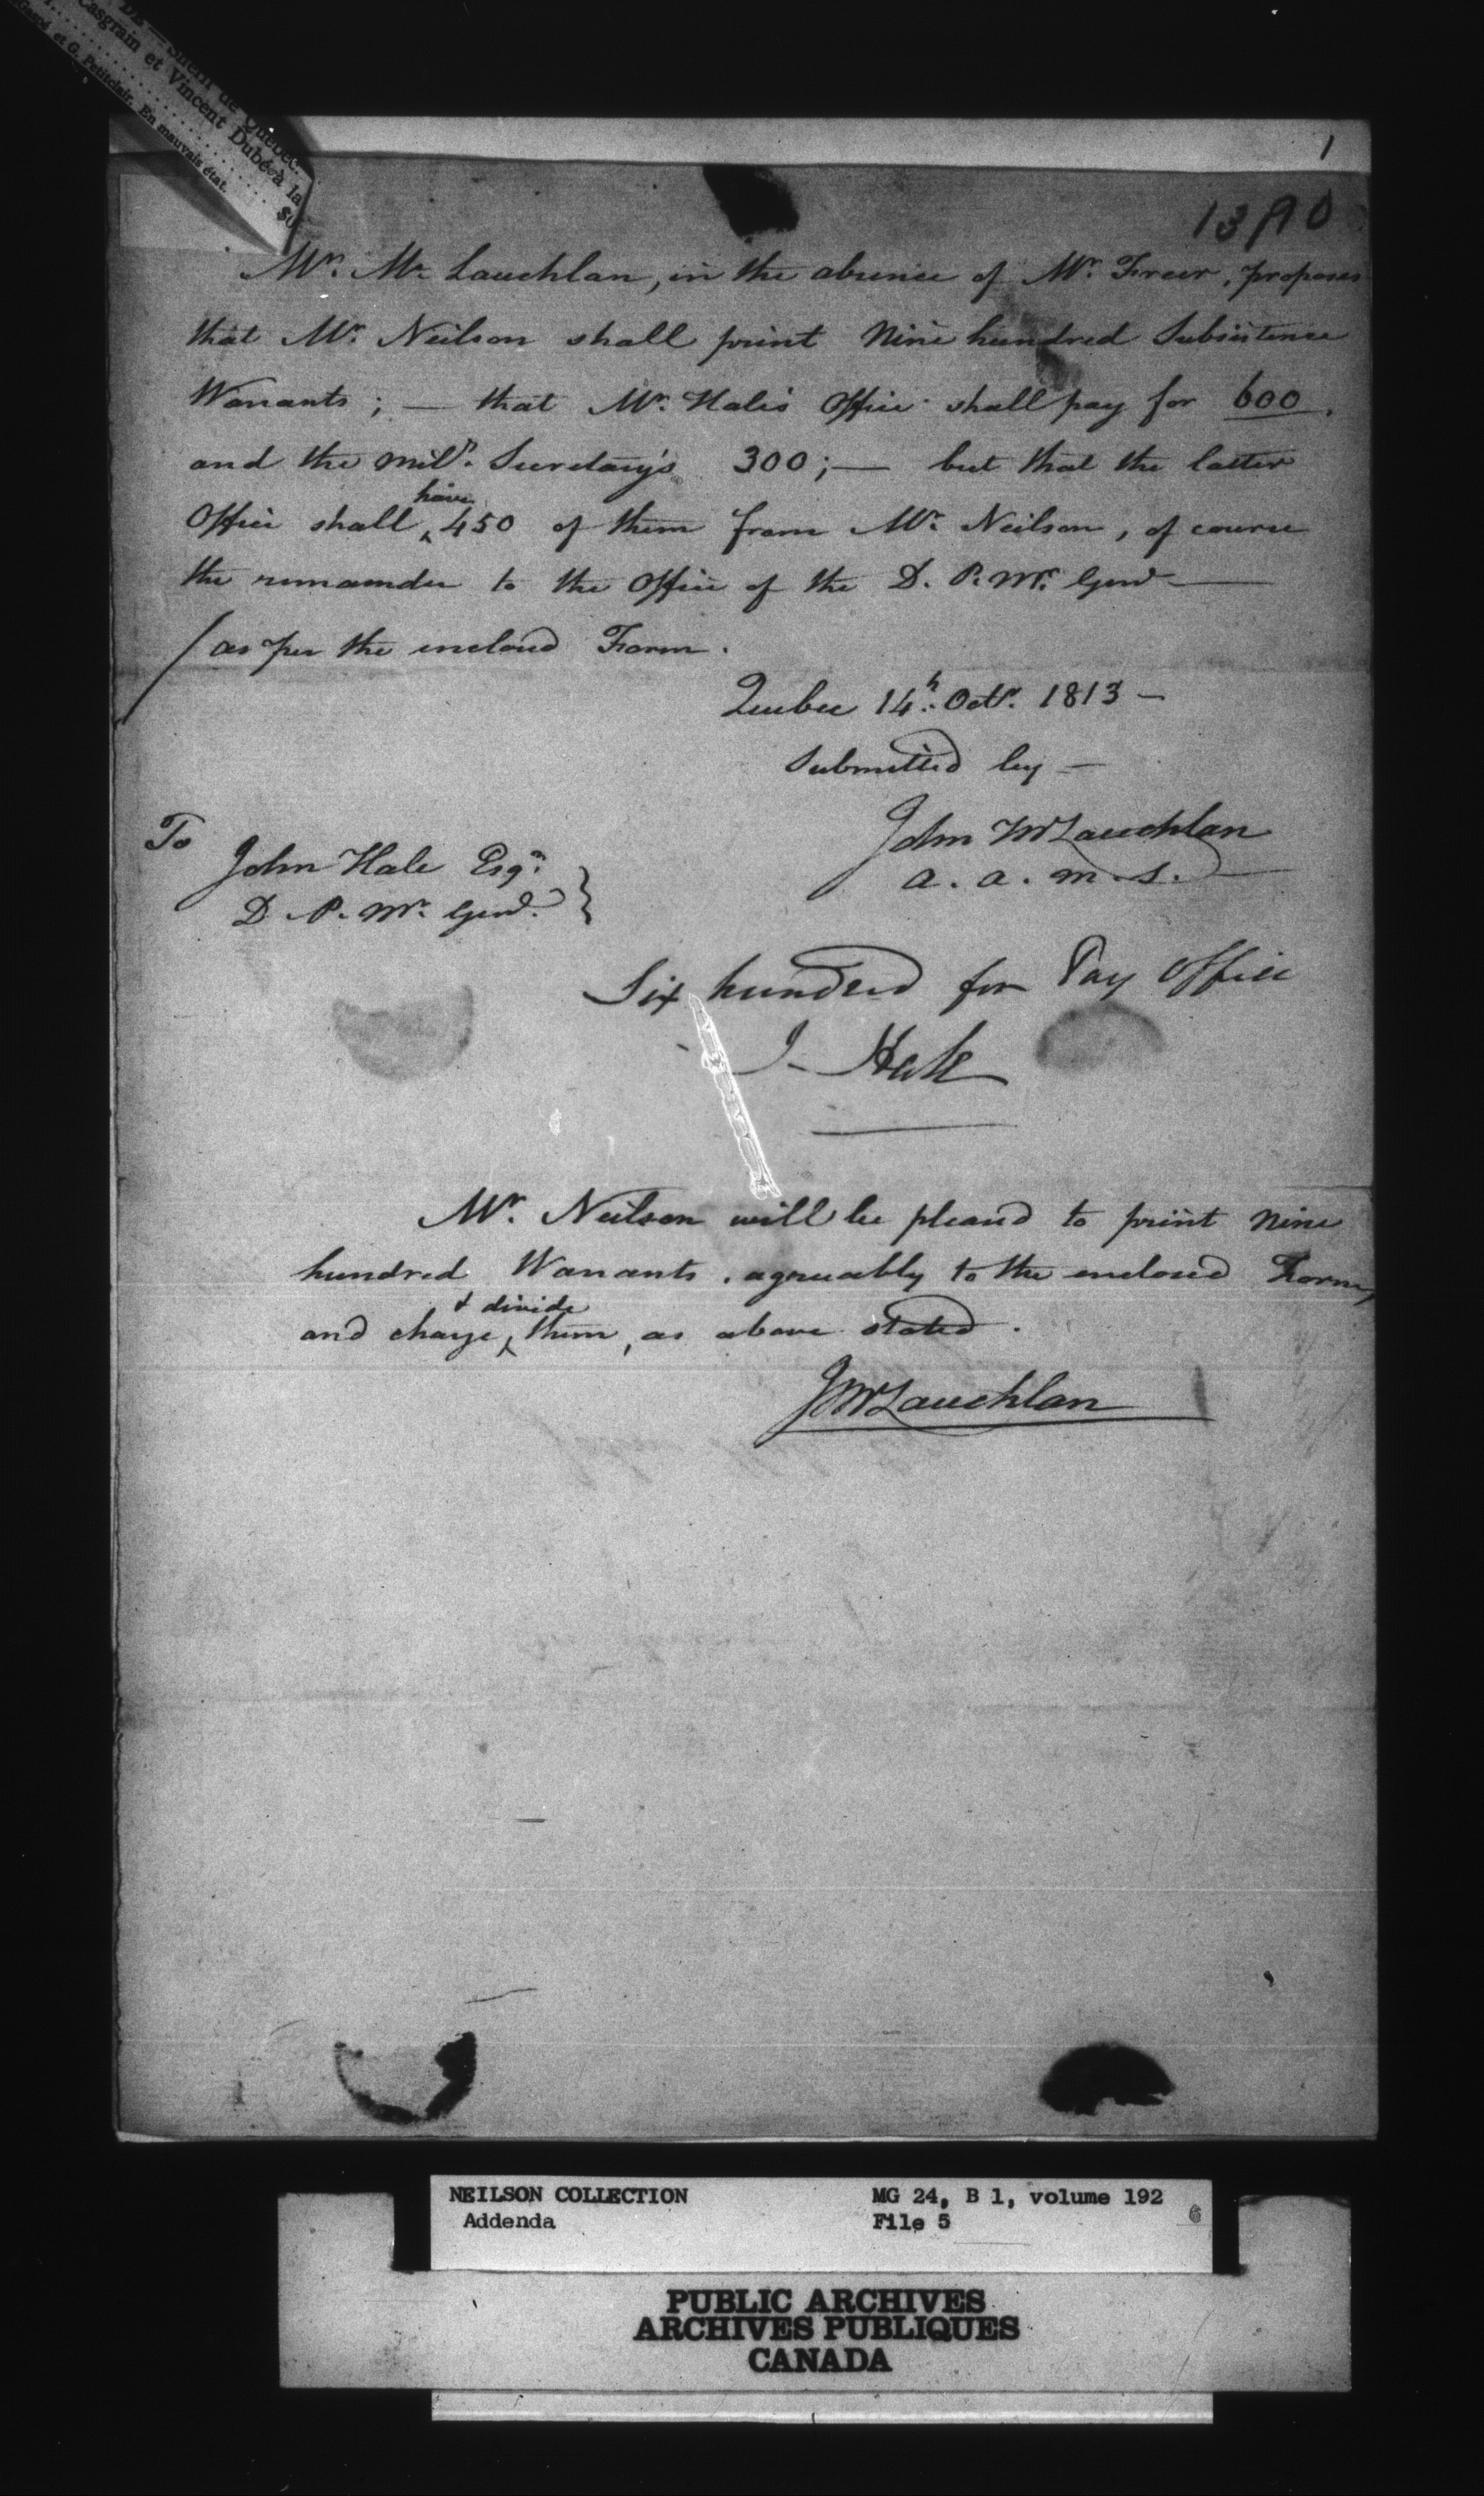 Shérif de Québec.
Casgrain et Vincent Dubé à la
et G. Petitclair. En mauvais état.
1
1390
Mr. Mc Lauchlan, in the absence of Mr. Freer, proposes
that Mr. Neilson shall print Nine hundred Subsistence
Warrants; — that Mr. Hale's Office shall pay for 600,
and the Mily. Secretary's 300; — but that the latter
have
Office shall ‸ 450 of them from Mr. Neilson, of course
the remainder to the Office of the D. P. Mr. Genl —
/ as per the enclosed Form.
Quebec 14th Octr. 1813 —
Submitted by —
John McLauchlan
a. a. m. s.
To
John Hale Esqr.
D. P. Mr. Genl. }
Six hundred for Pay Office
J. Hale
Mr. Neilson will be pleased to print Nine
hundred Warrants, agreeably to the enclosed Form,
& divide
and charge ‸ them, as above stated.
JMcLauchlan
NEILSON COLLECTION
Addenda
MG 24, B 1, volume 192
File 5
6
PUBLIC ARCHIVES
ARCHIVES PUBLIQUES
CANADA